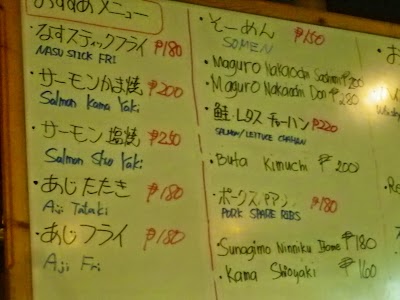 おすすめメニュー
・なすスティックフライ ₱180
NASU STICK FRI
・サーモンかま焼 ₱200
Salmon Kama Yaki
・サーモン塩焼 ₱250
Salmon Shio Yaki
・あじたたき ₱180
Aji Tataki
・あじフライ ₱180
Aji Fri
・そーめん ₱150
SOMEN
・Maguro Nakaochi Sashimi ₱200
・Maguro Nakaochi Don ₱280
・鮭・レタスチャーハン ₱220
SALMON/LETTUCE CHAHAN
・Buta Kimuchi ₱200
・ポークスペアリブ ₱180
PORK SPARE RIBS
・Sunagimo Ninniku Itame ₱180
・Kama Shioyaki ₱160